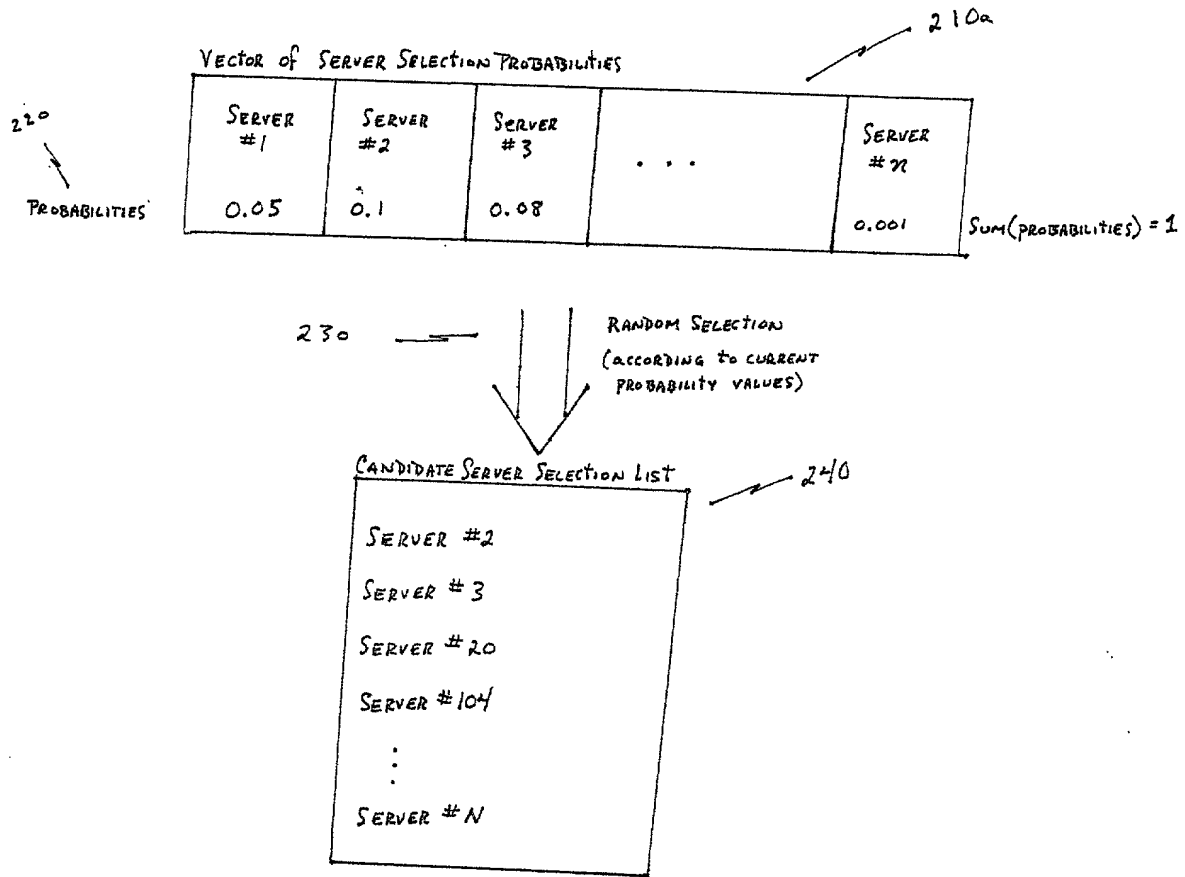 210a
VECTOR of SERVER SELECTION PROBABILITIES
220
SERVER #1
SERVER #2
SERVER #3
. . .
SERVER #n
PROBABILITIES
0.05
0.1
0.08
0.001
SUM(PROBABILITIES) = 1
230
RANDOM SELECTION
(ACCORDING to CURRENT
PROBABILITY VALUES)
CANDIDATE SERVER SELECTION LIST
240
SERVER #2
SERVER #3
SERVER #20
SERVER #104
SERVER #N